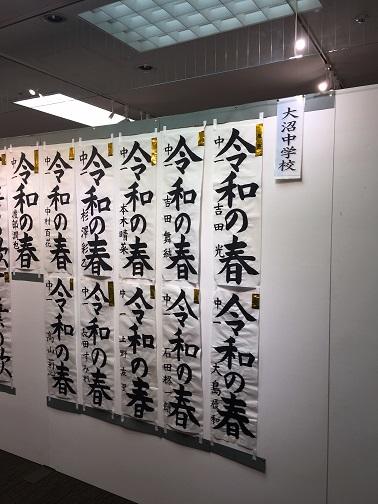 大沼中学校
令和の春
中一 吉田 光
令和の春
中一 吉田 舞紘
令和の春
中一 本木晴菜
令和の春
中一 杉澤彩
令和の春
中一 中村百花
令和の春
令和の春
中一 大島
令和の春
中一 石田柊
令和の春
中一 上野友里
令和の春
中一 長田すみれ
令和の春
中一 高山